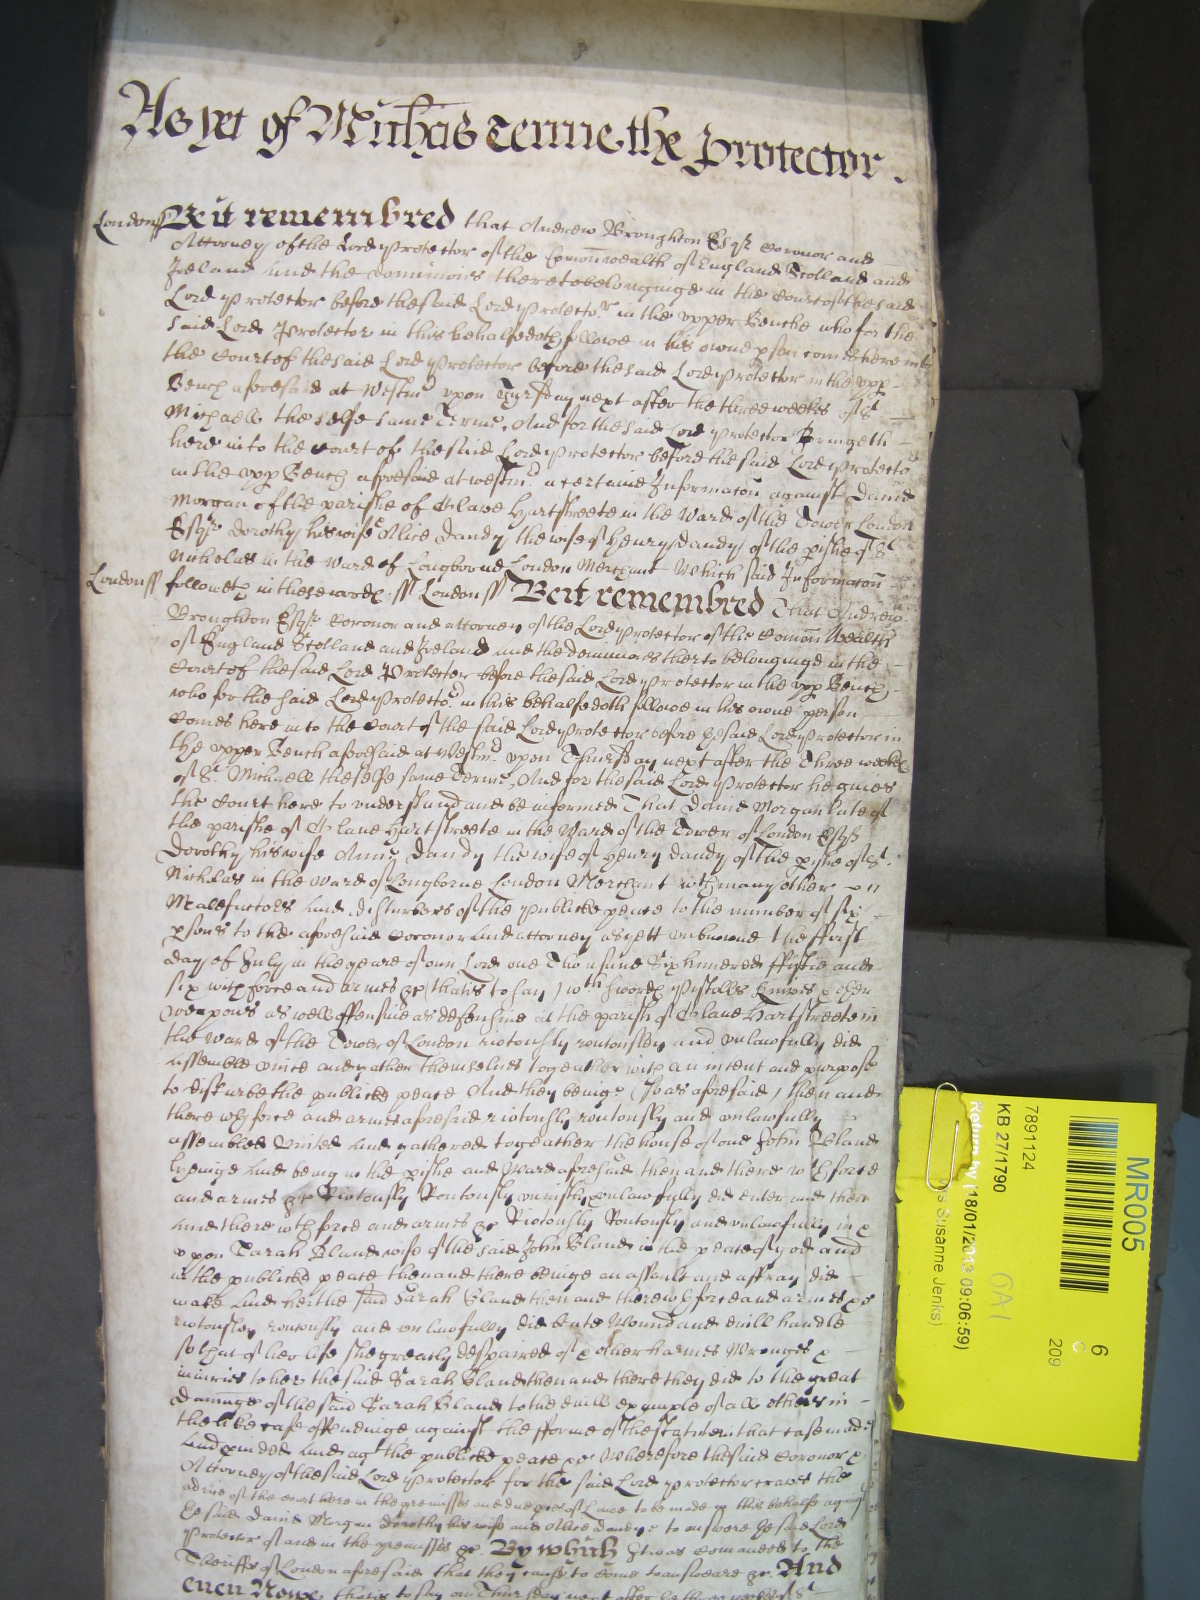 As yet of Michas Terme the Protector.
Londonss Be it remembred that Andrew Broughton Esqr Coronor and
Attorney of the Lord Protector of the Comonwealth of England Scotland and
Ireland and the dominions theretobelonginge in the Court of the said
Lord Protector before the said Lord Protector in the upper Benche who for the
said Lord Protector in this behalfe doth followe in his owne pson comes here into
the Court of the said Lord Protector before the said Lord Protector in the upp
Bench aforesaid at Westmr upon Thursday next after the three weekes of St
Michaell the selfe same Terme, And for the said Lord Protector Bringeth
here into the Court of the said Lord Protector before the said Lord Protector
in the upp Bench aforesaid at Westmr a certaine Informacon against David
Morgan of the parishe of Olave Hartstreete in the Ward of the Tower London
Esqr Dorothy his wife Alice Dandy the wife of Henry Dandy of the pishe of St
Nicholas in the Ward of Longborne London Merchant Which said Informacon
Londonss followeth in these words ss London ss Be it remembred That Andrew
Broughton Esqr Coronor and attorney of the Lord Protector of the Comon Wealth
of England Scotland and Ireland and the dominions therto belonginge in the
Court of the said Lord Protector before the said Lord Protector in the upp Bench
who for the said Lord Protector in this behalfe doth followe in his owne person
Comes here into the Court of the said Lord Protector before the said Lord Protector in
the upper Bench aforesaid at Westmr upon Thursday next after the Three weekes
of St Michaell the selfe same Terme, And for the said Lord Protector he gives
the Court here to understand and be informed That David Morgan late of
the parishe of Olave Hartstreete in the Ward of the Tower of London Esqr
Dorothy his wife Anne Dandy the wife of Henry Dandy of the pishe of St
Nicholas in the Ward of Longborne London Merchant with many other
Malefactors and disturbers of the publicke peace to the number of six
psons to the aforesaid Coronor and attorney as yett unknowne the ffirst
day of July in the yeare of our Lord one Thousand Six hundred ffiftie and
six with force and armes &c (that is to say) wth swords Pistolls knives & other
weapons as well offensive as defensive at the parish of Olave Hartstreete in
the Ward of the Tower of London riotously routously and unlawfully did
assemble unite and gather themselves togeather with an intent and purpose
to disturbe the publicke peace And they beinge (so as aforesaid) then and
there wth force and armes aforesaid riotously routously and unlawfully
assembled United and gathered togeather the house of one John Bland
lyeinge and being in the pishe and Ward aforesaid then and there wth force
and armes &c Riotously Routously unlawfully did enter and then
and there wth force and armes &c Riotously Routously and unlawfully in &
upon Sarah Bland wife of the said John Bland in the peace of god and
in the publicke peace then and there beinge an assault and affray did
make And her the said Sarah Bland then and there wth force and armes &c
riotously routously and unlawfully did beate Wound and evill handle
so that of her life she greatly despaired of & other harmes Wronges &
iniuries to her the said Sarah Bland then and there they did to the great
damage of the said Sarah Bland to the evill example of all others in
the like case offendinge against the fforme of the statute in that case made
and pvided And agt the publicke peace &c Wherefore the said Coronor &
Attorney of the said Lord Protector for the said Lord Protector craves the
advice of the Court here in the premisses and due pces of Lawe to be made in this behalfe against
the said David Morgan Dorothy his wife and Alice Dandy to answere the said Lord
Protector of and in the premisses &c By which It was comanded to the
Sheriffs of London aforesaid that they cause to come to answere &c. And
even Nowe that is to say on Thursday next after the three weekes of St
MR005
6
209
7891124
KB 27/1790
Return by (18/01/2013 09:06:59)
Susanne Jenks)